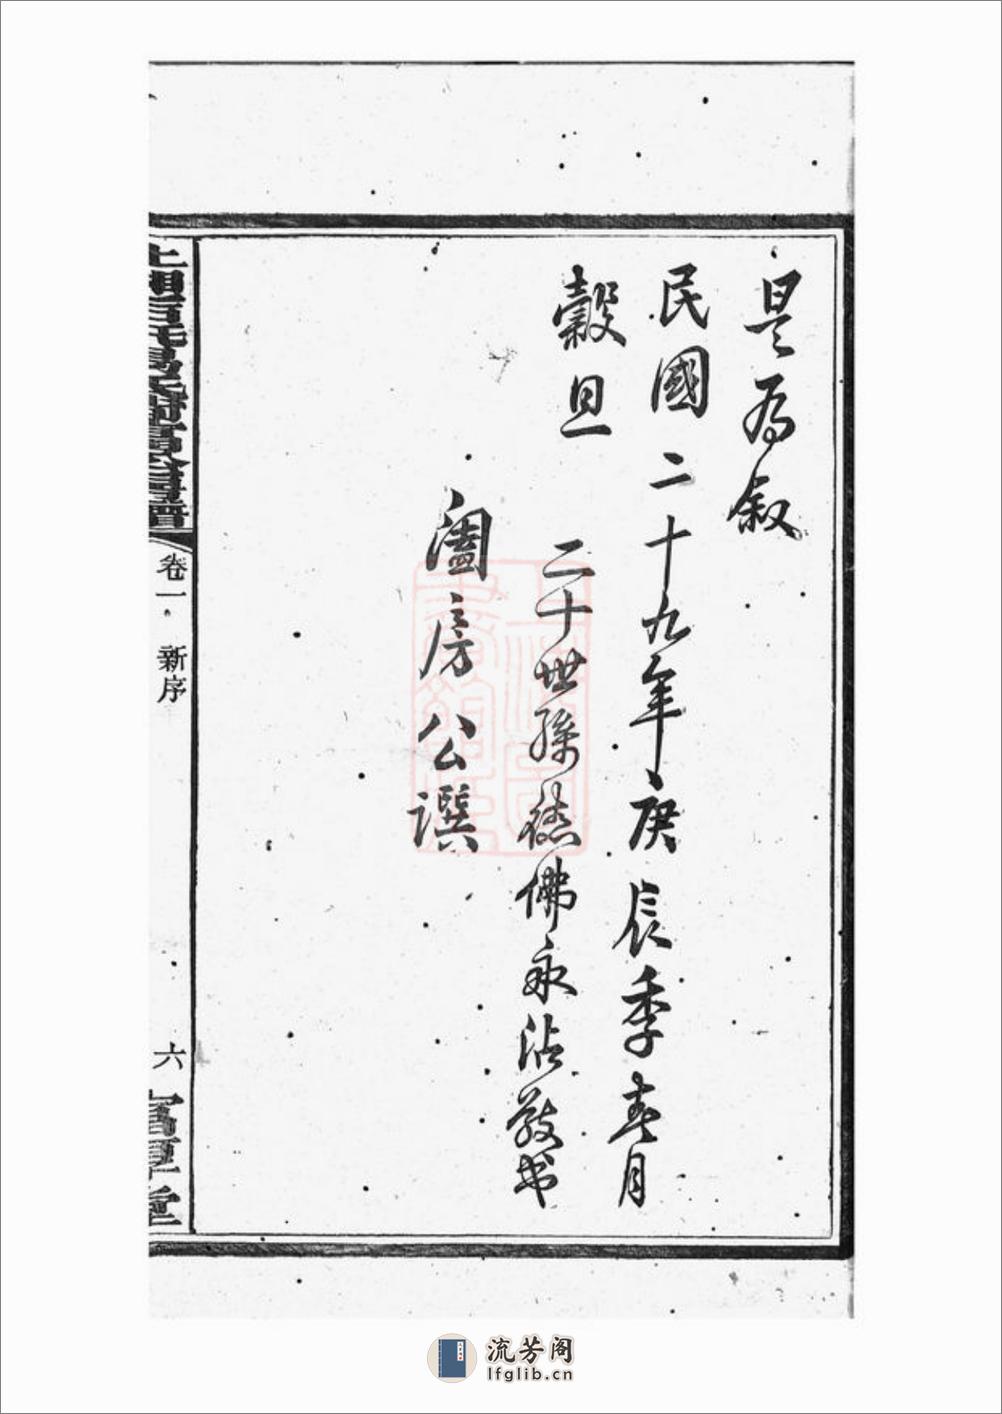 是为叙
民國二十九年庚辰季春月
穀旦
二十世孫德佛永沾敬书
闔房公譔
卷一
新序
六
富厚堂
流芳阁
lfglib.cn